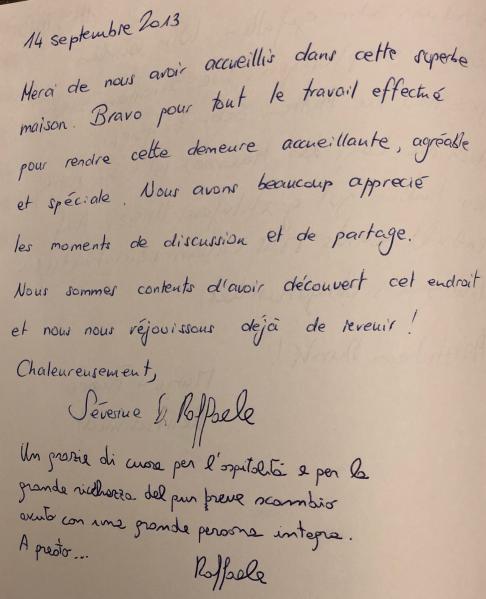 14 septembre 2013
Merci de nous avoir accueillis dans cette superbe
maison. Bravo pour tout le travail effectué
pour rendre cette demeure accueillante, agréable
et spéciale. Nous avons beaucoup apprecié
les moments de discussion et de partage.
Nous sommes contents d'avoir découvert cet endroit
et nous nous réjouissons dejà de revenir !
Chaleureusement,
Séverine & Raffaele
Un grazie di cuore per l'ospitalità e per la
grande ricchezza del pur breve scambio
avuto con una grande persona integra.
A presto...
Raffaele